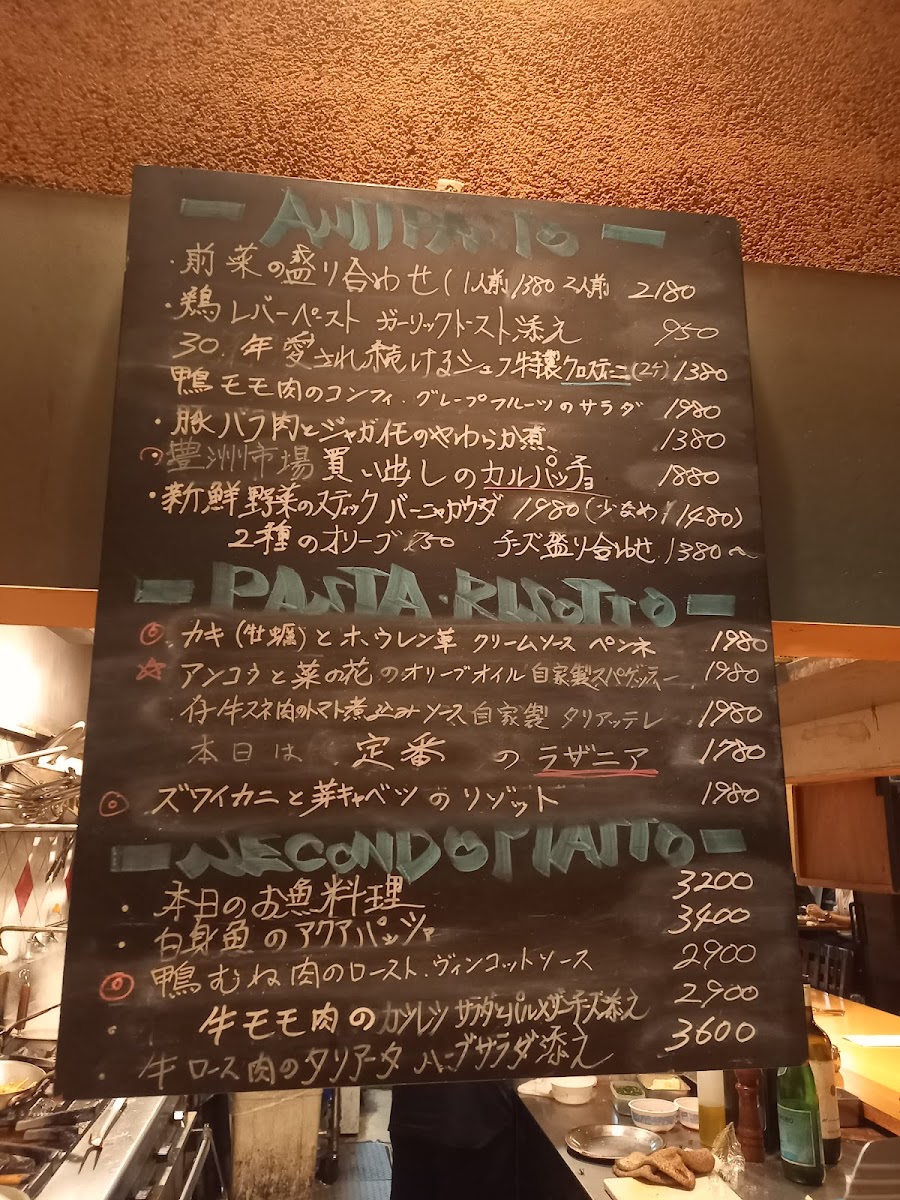 ANTIPASTO
・前菜の盛り合わせ(1人前1380 2人前 2180
・鶏レバーペースト ガーリックトースト添え 950
30年愛され続けるシェフ特製クロスティーニ(2ケ)1380
鴨モモ肉のコンフィ・グレープフルーツのサラダ 1980
・豚バラ肉とジャガイモのやわらか煮 1380
豊洲市場買い出しのカルパッチョ 1880
・新鮮野菜のスティック バーニャカウダ 1980(少なめ1480)
2種のオリーブ 750 チーズ盛り合わせ 1380〜
PASTA・RISOTTO
◎ カキ(牡蠣)とホウレン草 クリームソース ペンネ 1980
☆ アンコウと菜の花のオリーブオイル 自家製スパゲッティー 1980
仔牛スネ肉のトマト煮込みソース 自家製 タリアッテレ 1980
本日は 定番 の ラザニア 1780
◎ ズワイカニと芽キャベツのリゾット 1980
SECONDO PIATTO
・本日のお魚料理 3200
・白身魚のアクアパッツァ 3400
◎ 鴨むね肉のロースト・ヴィンコットソース 2900
・牛モモ肉のカツレツ サラダとパルメザンチーズ添え 2900
・牛ロース肉のタリアータ ハーブサラダ添え 3600